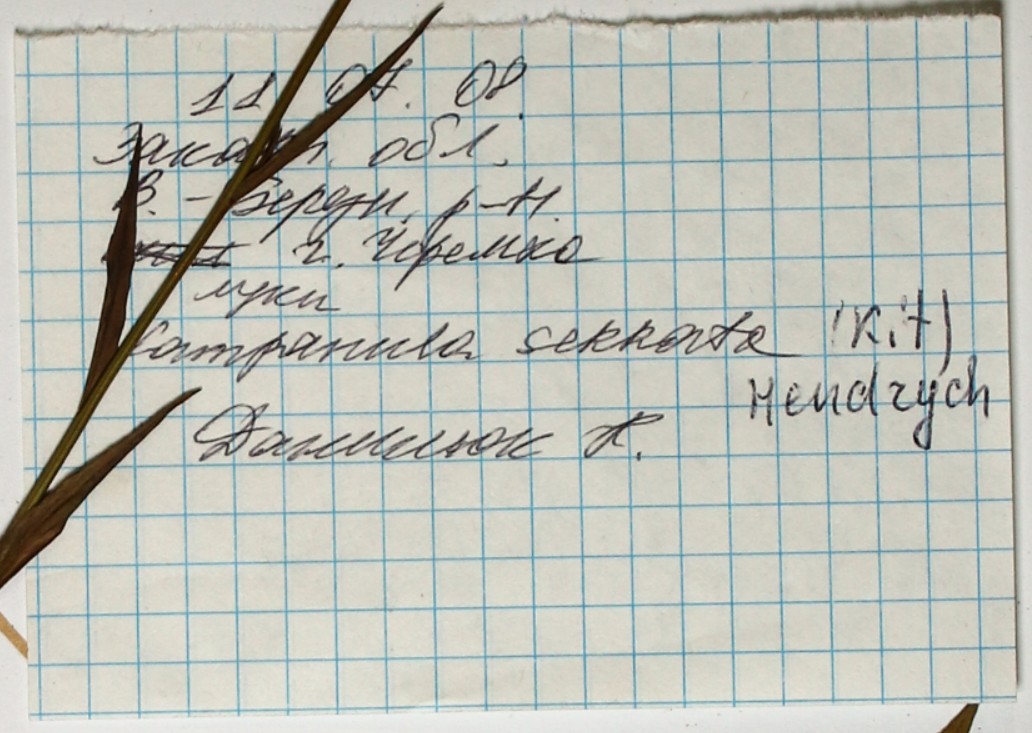 11 07. 08
Закарп. обл.
В. - Березн. р-н.
г. Черемха
луки
Campanula serrata (Kit)
Hendrych
Данилюк К.